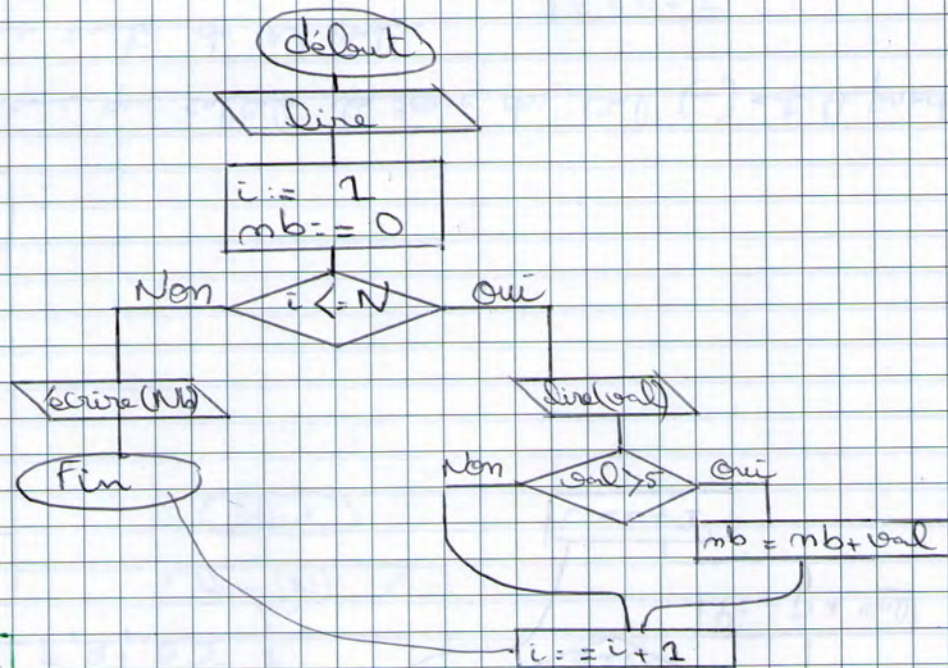 début
lire
i := 1
nb := 0
Non
i <= N
oui
écrire(Nb)
lire(val)
Fin
Non
val >5
oui
nb = nb + val
i := i + 1